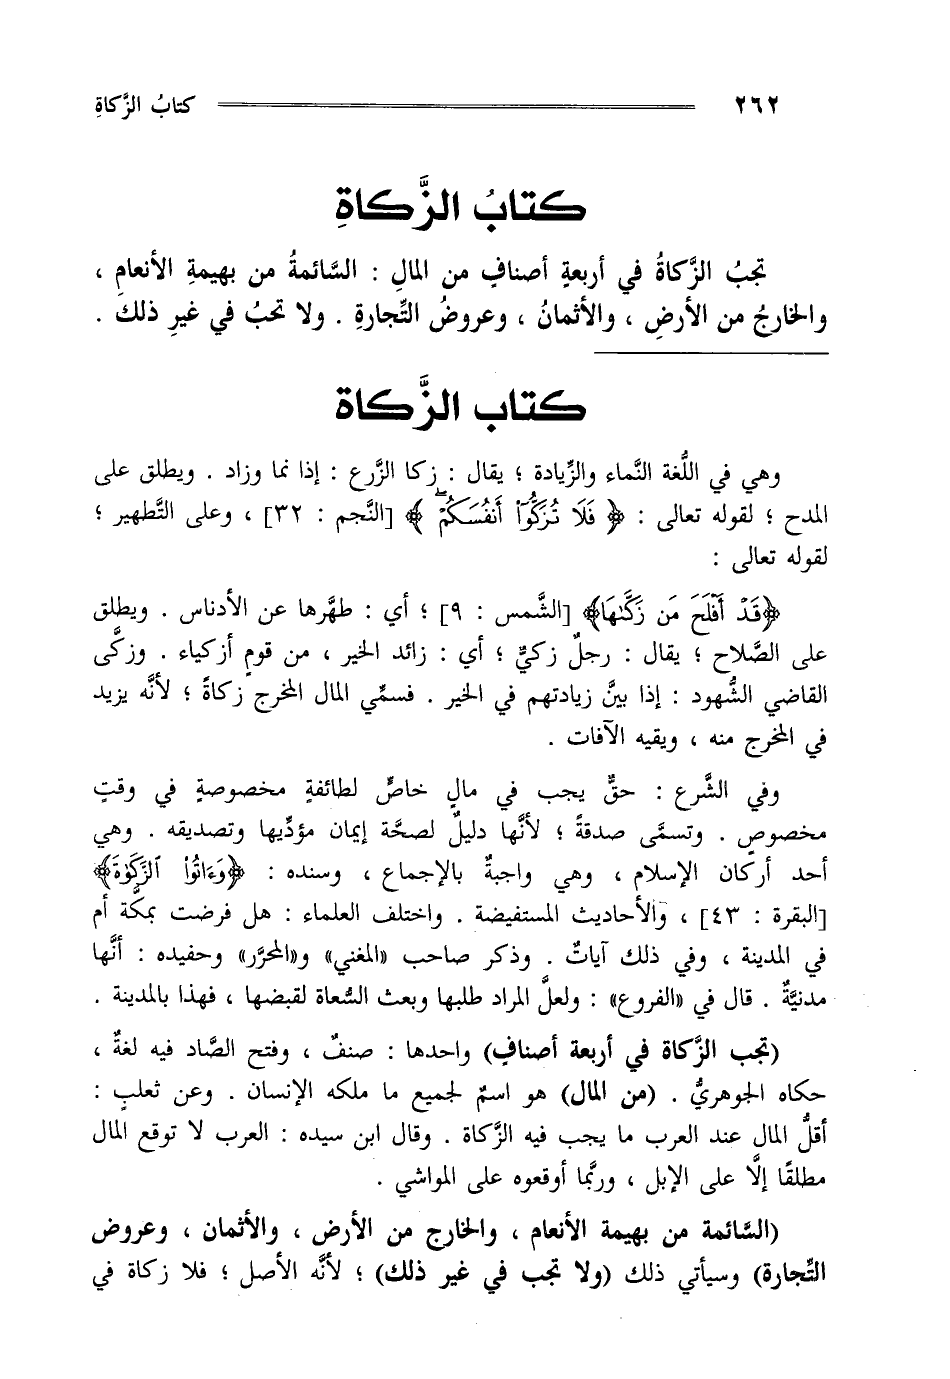 ٢٦٢ كتابُ الزَّكاةِ
كتابُ الزَّكاةِ
تجبُ الزَّكاةُ في أربعةِ أصنافٍ من المالِ : السَّائمةُ من بهيمةِ الأنعامِ ،
والخارجُ من الأرضِ ، والأثمانُ ، وعروضُ التِّجارةِ . ولا تجبُ في غيرِ ذلكَ .
كتاب الزَّكاة
وهي في اللُّغة النَّماء والزِّيادة ؛ يقال : زكا الزَّرع : إذا نما وزاد . ويطلق على
المدح ؛ لقوله تعالى : ﴿ فَلَا تُزَكُّوٓا۟ أَنفُسَكُمْ ۖ ﴾ [النَّجم : ٣٢] ، وعلى التَّطهير ؛
لقوله تعالى :
﴿قَدْ أَفْلَحَ مَن زَكَّىٰهَا﴾ [الشَّمس : ٩] ؛ أي : طهَّرها عن الأدناس . ويطلق
على الصَّلاح ؛ يقال : رجلٌ زكيٌّ ؛ أي : زائد الخير ، من قومٍ أزكياء . وزكَّى
القاضي الشُّهود : إذا بيَّن زيادتهم في الخير . فسمِّي المال المخرج زكاةً ؛ لأنَّه يزيد
في المخرج منه ، ويقيه الآفات .
وفي الشَّرع : حقٌّ يجب في مالٍ خاصٍّ لطائفةٍ مخصوصةٍ في وقتٍ
مخصوصٍ . وتسمَّى صدقةً ؛ لأنَّها دليلٌ لصحَّة إيمان مؤدِّيها وتصديقه . وهي
أحد أركان الإسلام ، وهي واجبةٌ بالإجماع ، وسنده : ﴿وَءَاتُوا۟ ٱلزَّكَوٰةَ﴾
[البقرة : ٤٣] ، والأحاديث المستفيضة . واختلف العلماء : هل فرضت بمكَّة أم
في المدينة ، وفي ذلك آياتٌ . وذكر صاحب «المغني» و«المحرَّر» وحفيده : أنَّها
مدنيَّةٌ . قال في «الفروع» : ولعلَّ المراد طلبها وبعث السُّعاة لقبضها ، فهذا بالمدينة .
(تجب الزَّكاة في أربعة أصنافٍ) واحدها : صنفٌ ، وفتح الصَّاد فيه لغةٌ ،
حكاه الجوهريُّ . (من المال) هو اسمٌ لجميع ما ملكه الإنسان . وعن ثعلبٍ :
أقلُّ المال عند العرب ما يجب فيه الزَّكاة . وقال ابن سيده : العرب لا توقع المال
مطلقًا إلَّا على الإبل ، وربَّما أوقعوه على المواشي .
(السَّائمة من بهيمة الأنعام ، والخارج من الأرض ، والأثمان ، وعروض
التِّجارة) وسيأتي ذلك (ولا تجب في غير ذلك) ؛ لأنَّه الأصل ؛ فلا زكاة في